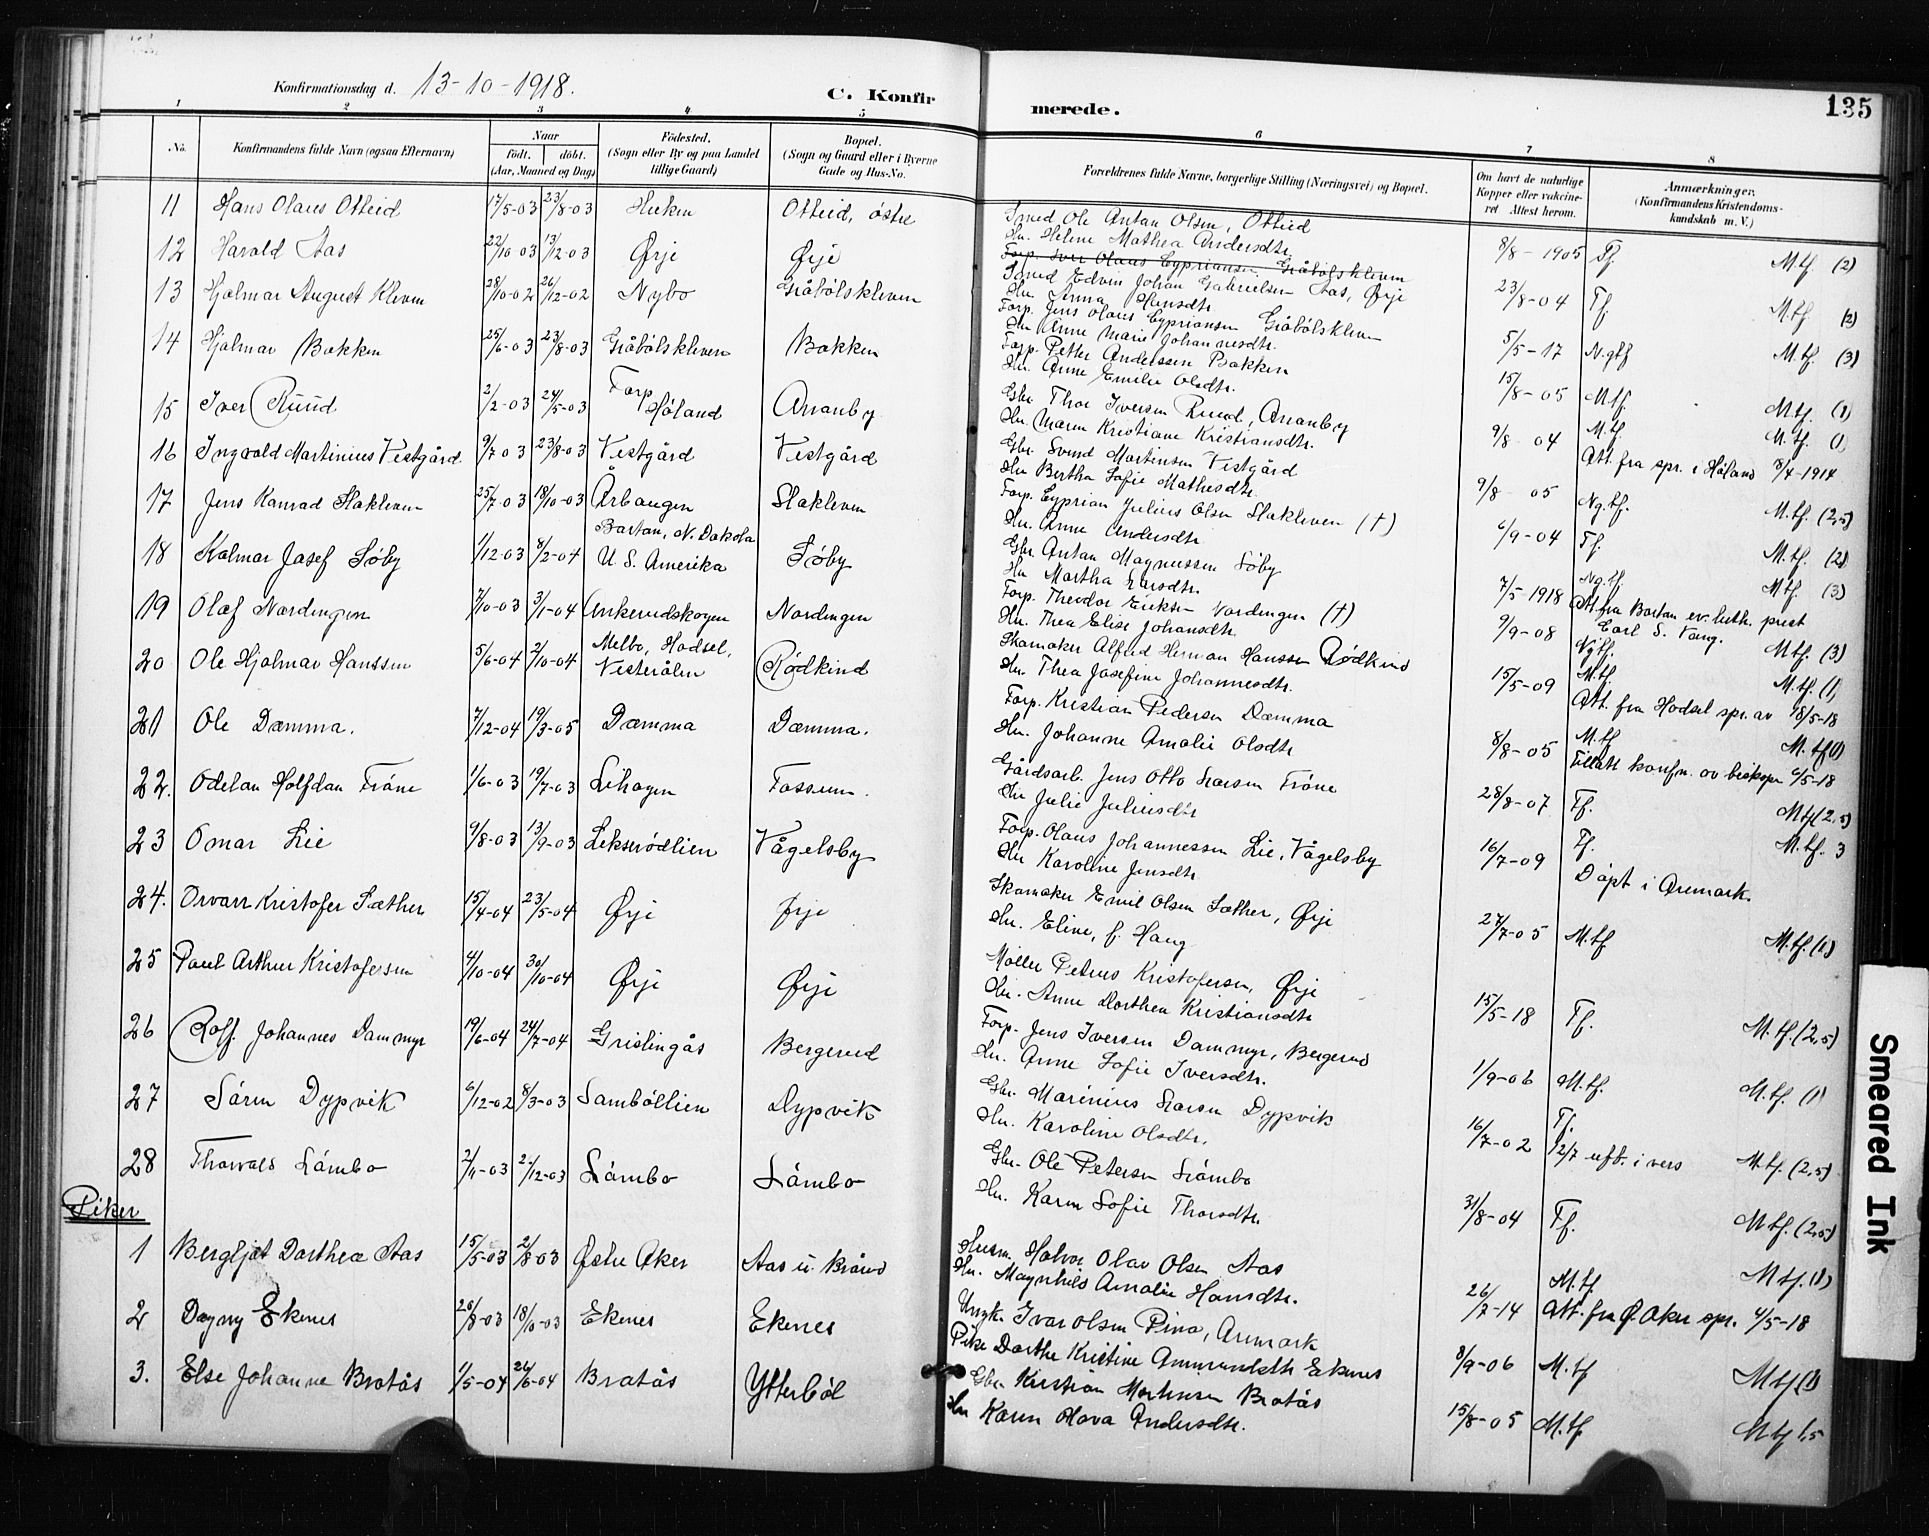 Konfirmationsdag d. 13-10-1918.
C. Konfirmerede.
135
1 2 3 4 5 6 7 8
No.
Konfirmandens fulde Navn (ogsaa Efternavn)
Naar
født. døbt.
(Aar, Maaned og Dag)
Fødested.
(Sogn eller By og paa Landet
tillige Gaard)
Bopæl.
(Sogn og Gaard eller i Byerne
Gade og Hus-No.
Forældrenes fulde Navne, borgerlige Stilling (Næringsvei) og Bopæl.
Om havt de naturlige
Kopper eller vakcine-
ret Attest herom.
Anmærkninger.
(Konfirmandens Kristendoms-
kundskab m. V.)
11 Hans Olaus Otteid 17/5-03 23/8-03 Otteid, østre
Smed Ole Antan Olsen, Otteid
Hu. Helene Mathea Andersdtr.
8/8-1905 Tf. M.tf. (2)
12 Harald Aas 22/10-03 13/12-03 Ørje Ørje
Torp. Iver Olaus Cypriansen Gråbölskleven
Smed Edvin Johan Gabrielsen Aas, Ørje
Hu. Anna Hansdtr.
23/8-04 Tf. M.tf. (2)
13 Hjalmar August Kleven 28/10-02 26/12-02 Nybo Gråbölskleven
Torp. Jens Olaus Cypriansen Gråbölskleven
Hu. Anne Marie Johannesdtr.
5/5-17 N.gtf M.tf. (3)
14 Hjalmar Bakken 25/6-03 23/8-03 Gråbölskleven Bakken
Torp. Petter Anderssen Bakken
Hu. Anne Emilie Olsdtr.
15/8-05 M.tf. M.tf. (1)
15 Iver Ruud 2/2-03 24/5-03 Torp Høland Ananby
Gbr. Thor Iversen Ruud, Ananby
Hu. Maren Kristiane Kristiansdtr.
9/8 04 M.tf. M.tf. (1)
Att. fra spr. i Høland 8/4-1914
16 Ingvald Martinius Vestgård 9/7 03 23/8-03 Vestgård Vestgård
Gbr. Svend Martinsen Vestgård
Hu. Bertha Sofie Mathisdtr.
9/8 05 Ng.tf. M.tf. (2,5)
17 Jens Konrad Slakleven 25/7-03 18/10-03 Årbaugen Slakleven
Torp. Cyprian Julius Olsen Slakleven (†)
Hu. Anne Andersdtr.
6/9-04 Tf. M.tf. (2)
18 Kalmar Josef Söby 1/12-03 8/2-04 Bartan, N. Dakota U. S. Amerika Söby
Gbr. Antan Magnussen Söby
Hu Martha Larsdtr.
7/5-1918 Ng.tf. M.tf. (3)
Att. fra Bartan ev. luth. prest
Carl S. Vang.
19 Olaf Nordengen 7/10-03 3/1-04 Ankerudskogen Nordengen
Torp. Theodor Eriksen Nordengen (†)
Hu. Thea Elise Johansdtr.
9/9-08 Ngtf. M.tf. (3)
20 Ole Hjalmar Hanssen 5/6-04 2/10-04 Melbo, Hadsel, Vesterålen Rødkind
Skomaker Alfred Herman Hanssen Rødkind
Hu. Thea Josefine Johannesdtr.
15/5-09 M.tf. M.tf. (1)
Att. fra Hadsel spr. av 18/5-18
21 Ole Dæmma. 7/12-04 19/3-05 Dæmma Dæmma.
Torp. Kristian Pedersen Dæmma
Hu. Johanne Amalie Olsdtr
8/8-05 M.tf M.tf (1)
Tillatt konfm. av biskopen 6/5-18
22. Odelan Halfdan Tröne 1/6-03 19/7-03 Lihagen Fossum.
Gårdsarb. Jens Otto Larsen Tröne
Hu Julie Juliusdtr
28/8-07 Tf. M.tf (2,5)
23 Omar Lie 9/8-03 13/9-03 Lekserödlien Vågelsby
Torp. Olaus Johannessen Lie, Vågelsby
Hu Karoline Jensdtr
16/7-09 Tf. M.tf. 3
Døpt i Aremark.
24. Orvar Kristofer Sæther 15/4-04 23/5-04 Ørje Ørje
Skomaker Emil Olsen Sæther, Ørje
Hu. Eline, f. Haug
27/7-05 M.tf M.tf. (1)
25 Paul Arthur Kristofersen 4/10-04 30/10-04 Ørje Ørje
Möller Petrus Kristofersen, Ørje
Hu. Anne Dorthea Kristiansdtr
15/5-18 Tf. M.tf. (2,5)
26 Rolf Johannes Dammyr 19/6-04 24/7-04 Grislingås Bergerud
Torp. Jens Iversen Dammyr, Bergerud
Hu. Anne Sofie Iversdtr.
1/9-06 M.tf. M.tf. (1)
27 Sören Dypvik 6/12-02 8/3-03 Sambøllien Dypvik
Gbr. Marinius Larsen Dypvik
Hu. Karoline Olsdtr.
16/7-02 Tf. M.tf. (2,5)
12/7 uft. i vers
28 Thorvald Låmbo 2/11-03 /12-03 Låmbo Låmbo
Gbr. Ole Petersen Låmbo
Hu. Karen Sofie Thorsdtr.
31/8-04 Tf. M.tf. (2,5)
Piker
1 Bergljot Dorthea Aas 15/5-03 2/8-03 Østre Aker Aas u. Brård
Husm. Halvor Olav Olsen Aas
Hu. Magnhild Amalie Hansdtr.
26/7-14 M.tf. M.tf. (1)
Att. fra Ø. Aker spr. 4/5-18
2 Dagny Ekenes 20/8-03 18/10-03 Ekenes Ekenes
Ungk. Ivar Olsen, Aremark
Pike Dorthe Kristine Ammundsdtr Ekenes
8/9-06 M.tf M.tf (1)
3. Else Johanne Bratås 1/5-04 26/6-04 Bratås Ytterböl
Gbr. Kristian Martinsen Bratås
Hu Karen Olava Andersdtr.
15/8-05 M.tf M.tf 1,5
Smeared Ink